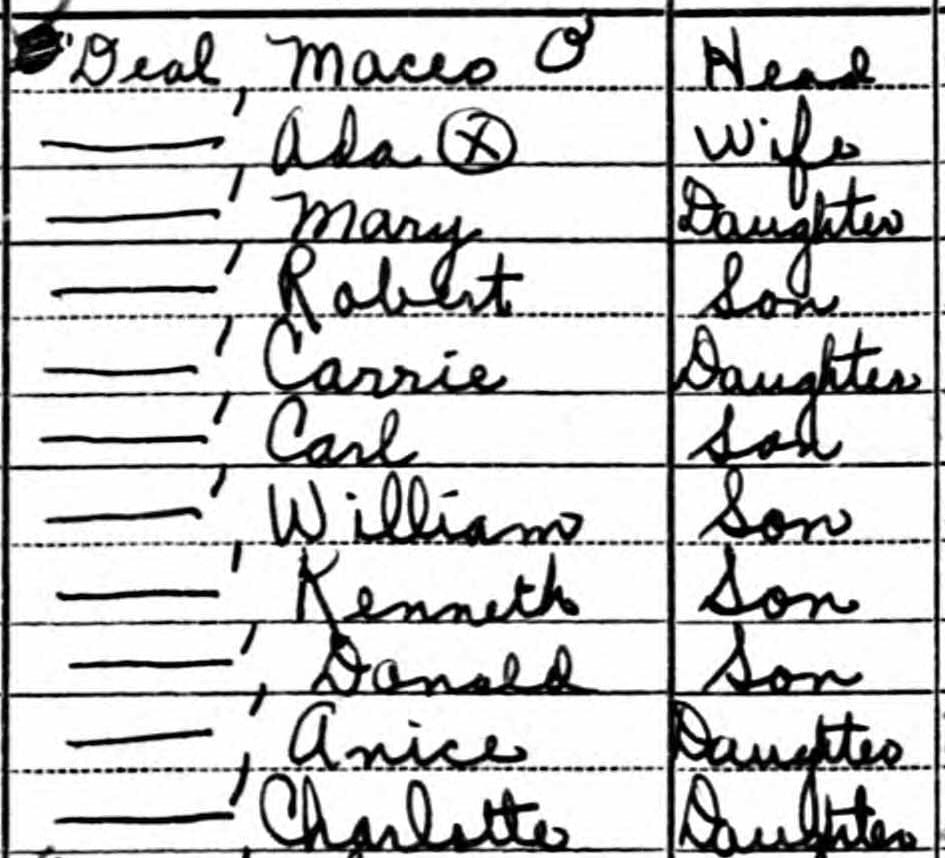 Deal, Maceo O Head
—, Ada ⓧ Wife
—, Mary Daughter
—, Robert Son
—, Carrie Daughter
—, Carl Son
—, William Son
—, Kenneth Son
—, Donald Son
—, Anice Daughter
—, Charlotte Daughter